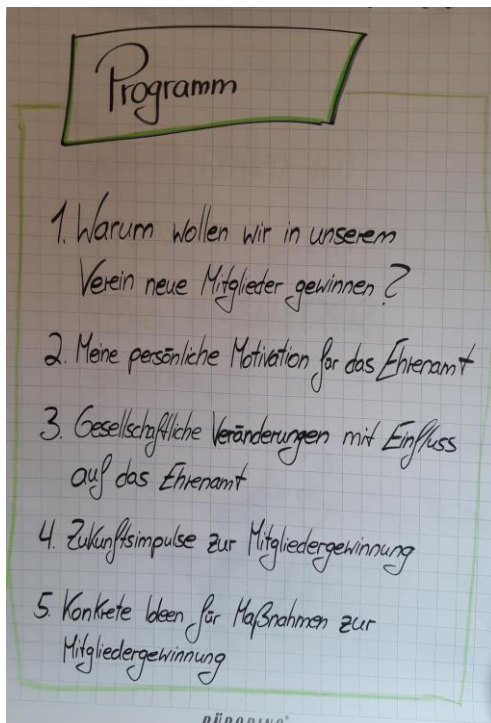 Programm
1. Warum wollen wir in unserem
Verein neue Mitglieder gewinnen?
2. Meine persönliche Motivation für das Ehrenamt
3. Gesellschaftliche Veränderungen mit Einfluss
auf das Ehrenamt
4. Zukunftsimpulse zur Mitgliedergewinnung
5. Konkrete Ideen für Maßnahmen zur
Mitgliedergewinnung